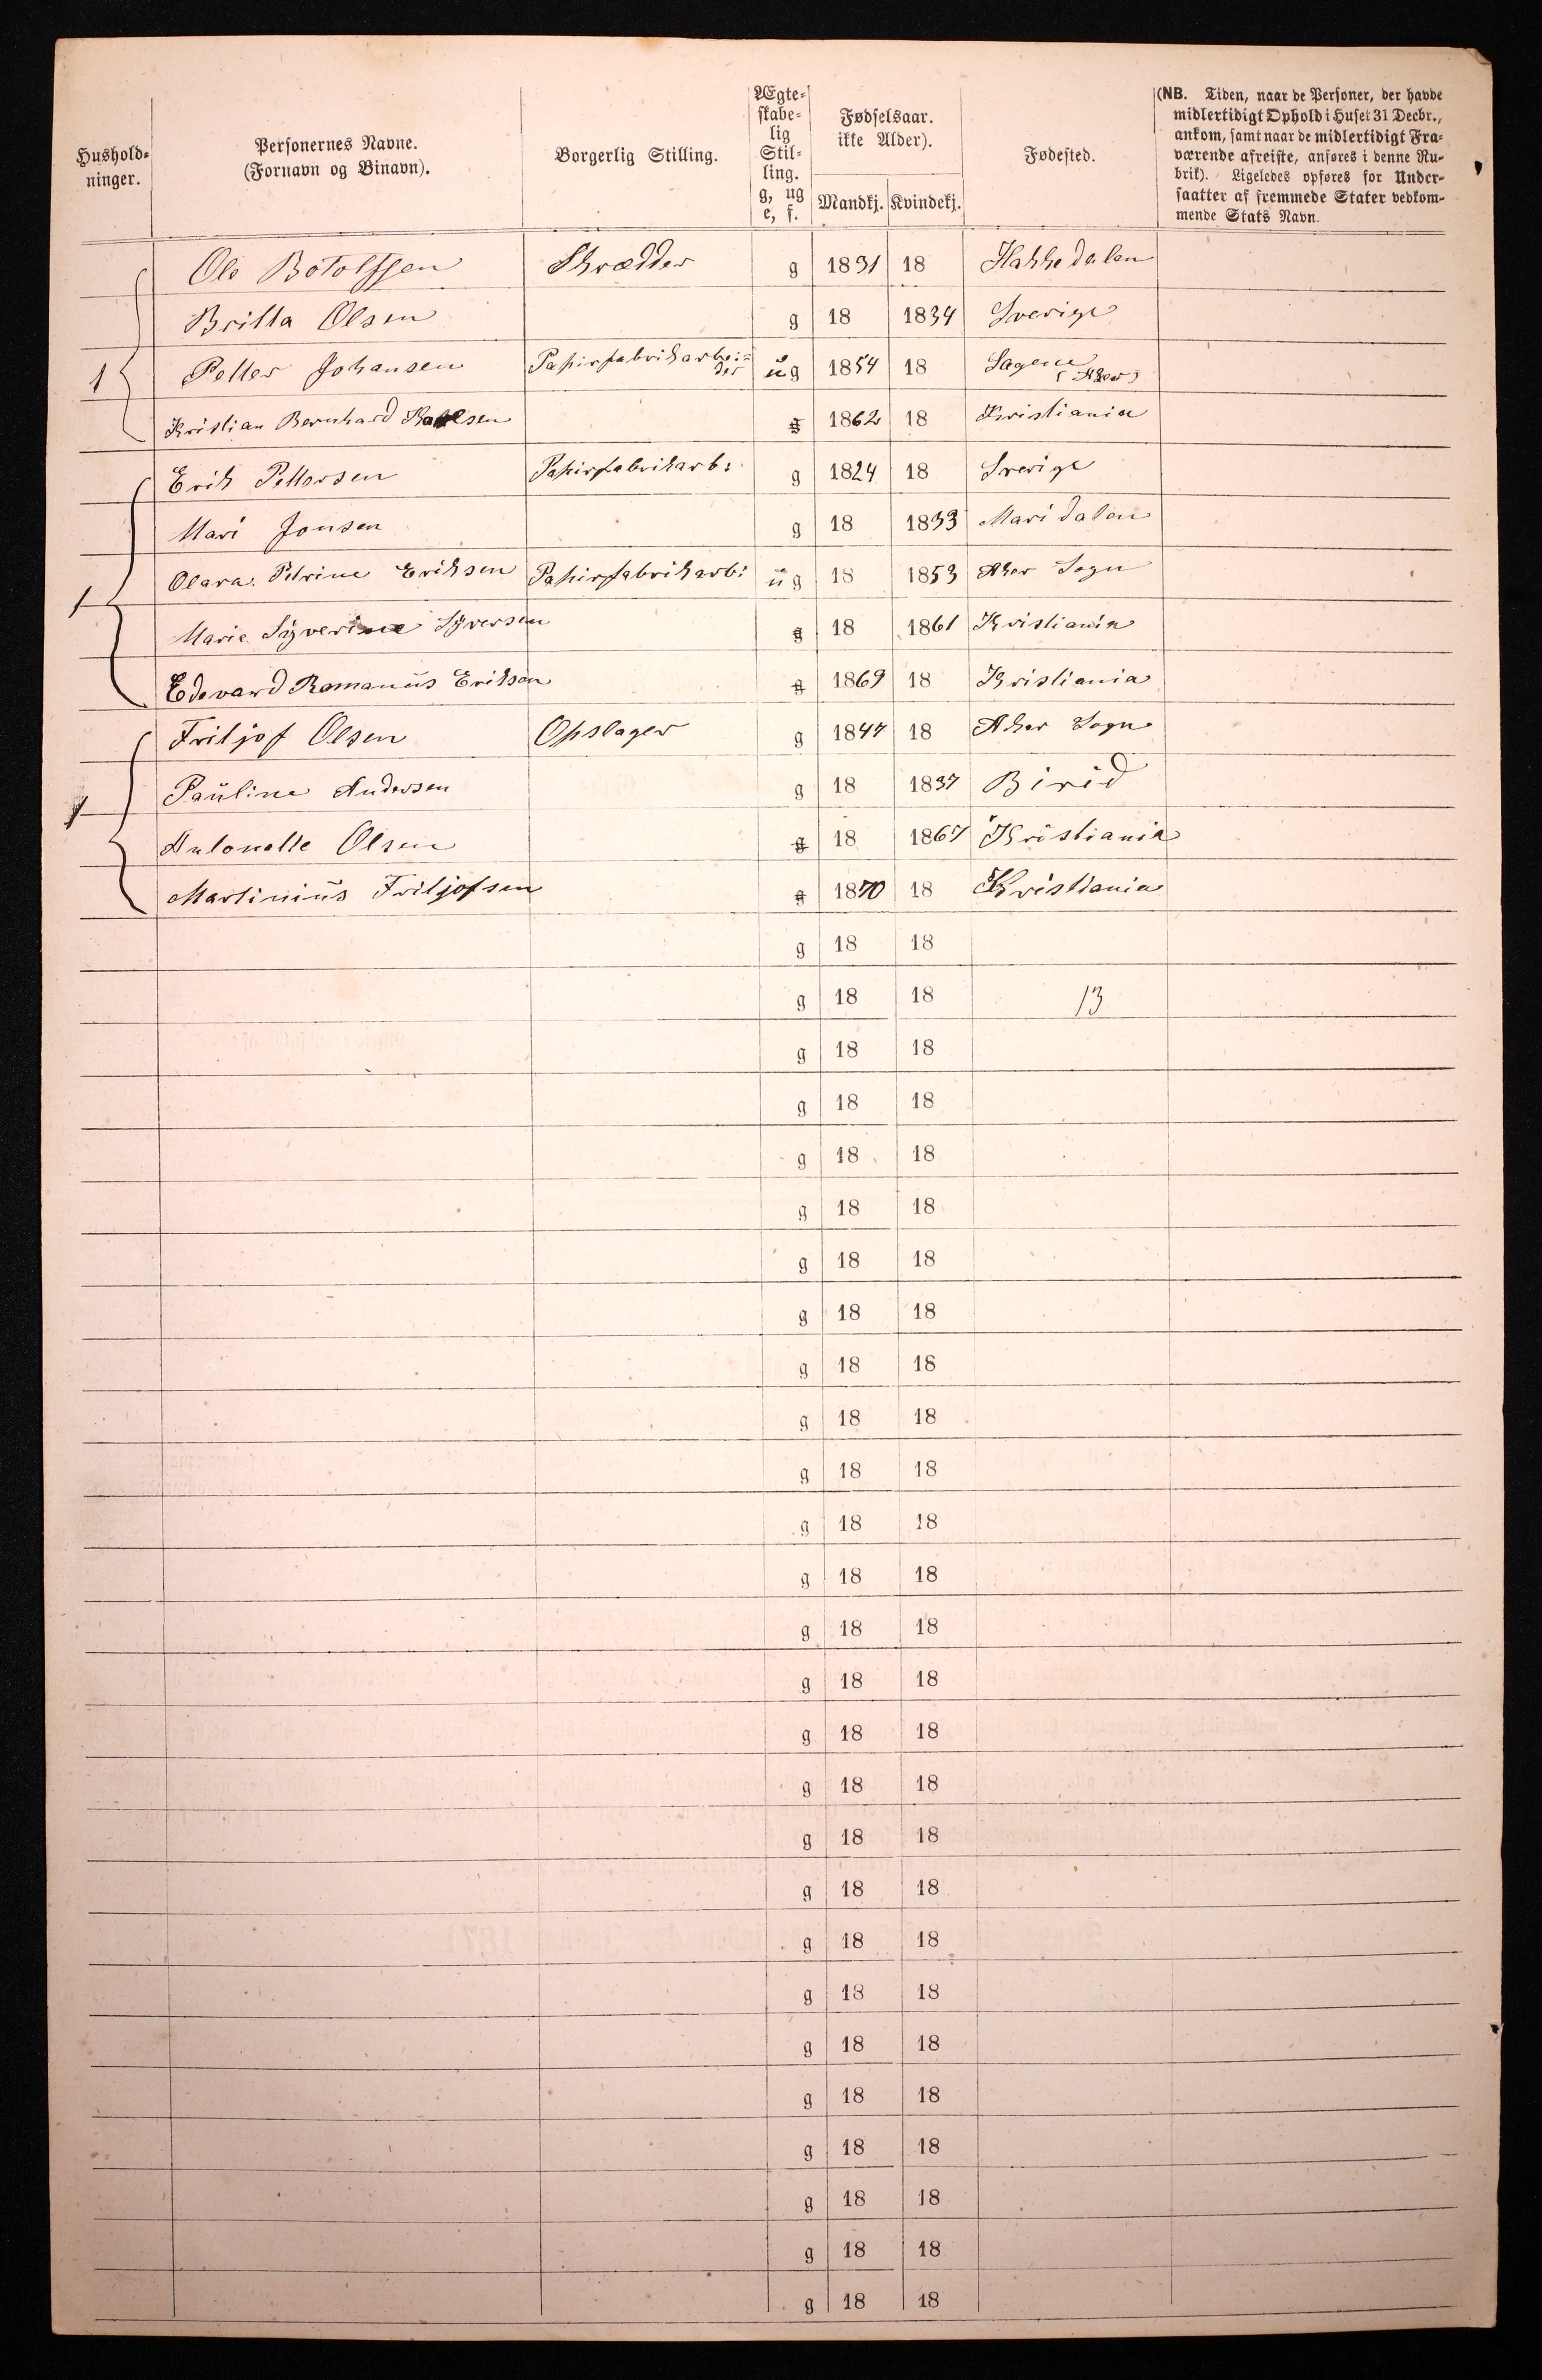 Hushold-
ninger.
Personernes Navne.
(Fornavn og Binavn).
Borgerlig Stilling.
Ægte-
skabe-
lig
Stil-
ling.
g, ug
e, f.
Fødselsaar.
ikke Alder).
Mandkj. Kvindekj.
Fødested.
(NB. Tiden, naar de Personer, der havde
midlertidigt Ophold i Huset 31 Decbr.,
ankom, samt naar de midlertidigt Fra-
værende afreiste, anføres i denne Ru-
brik). Ligeledes opføres for Under-
saatter af fremmede Stater vedkom-
mende Stats Navn.
Ole Botolfssen Skrædder g 1831 18 Hakkedalen
Britta Olsen g 18 1834 Sverige
1 Petter Johansen Papirfabrikarbei=
der ug 1854 18 Sagene
(Aker)
Kristian Bernhard g 1862 18 Kristiania
Erik Pettersen Papirfabrikarb: g 1824 18 Sverige
Mari Jonsen g 18 1833 Maridalen
1 Olava Petrine Eriksen Papirfabrikarb: ug 18 1853 Aker Sogn
Marie Syverine Syversen g 18 1861 Kristiania
Edevard Romanus Eriksen g 1869 18 Kristiania
Fritjof Olsen Opslager g 1847 18 Aker Sogn
1 Pauline Andersen g 18 1837 Birid
Antonette Olsen g 18 1867 Kristiania
Martinius Fritjofsen g 1870 18 Kristiania
g 18 18
g 18 18 13
g 18 18
g 18 18
g 18 18
g 18 18
g 18 18
g 18 18
g 18 18
g 18 18
g 18 18
g 18 18
g 18 18
g 18 18
g 18 18
g 18 18
g 18 18
g 18 18
g 18 18
g 18 18
g 18 18
g 18 18
g 18 18
g 18 18
g 18 18
g 18 18
g 18 18